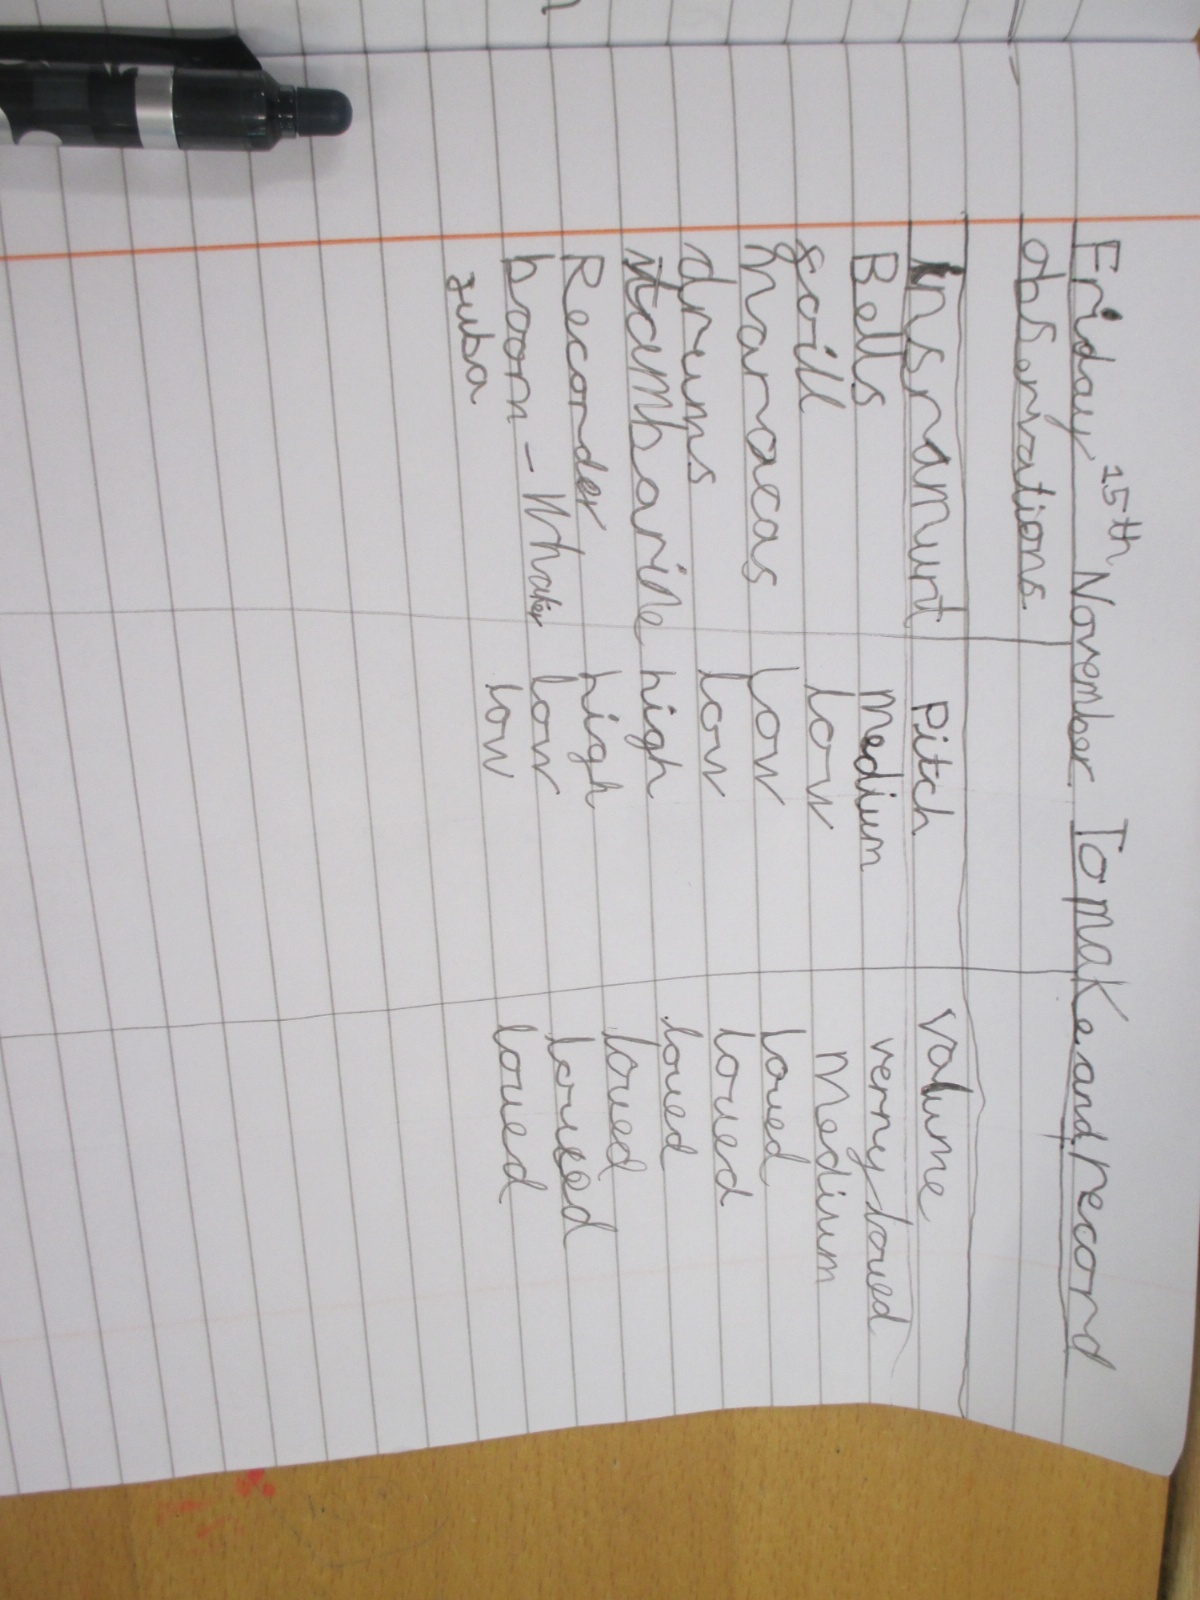 Friday 15th November To make and record
obs.ervations
Insramunt Pitch valume
Bells Medium verny loued
goill low Medium
maraacas low loued
drums low loued
tambarine high loued
Recorder high loued
boom-Whaker low loued
zuba low loued